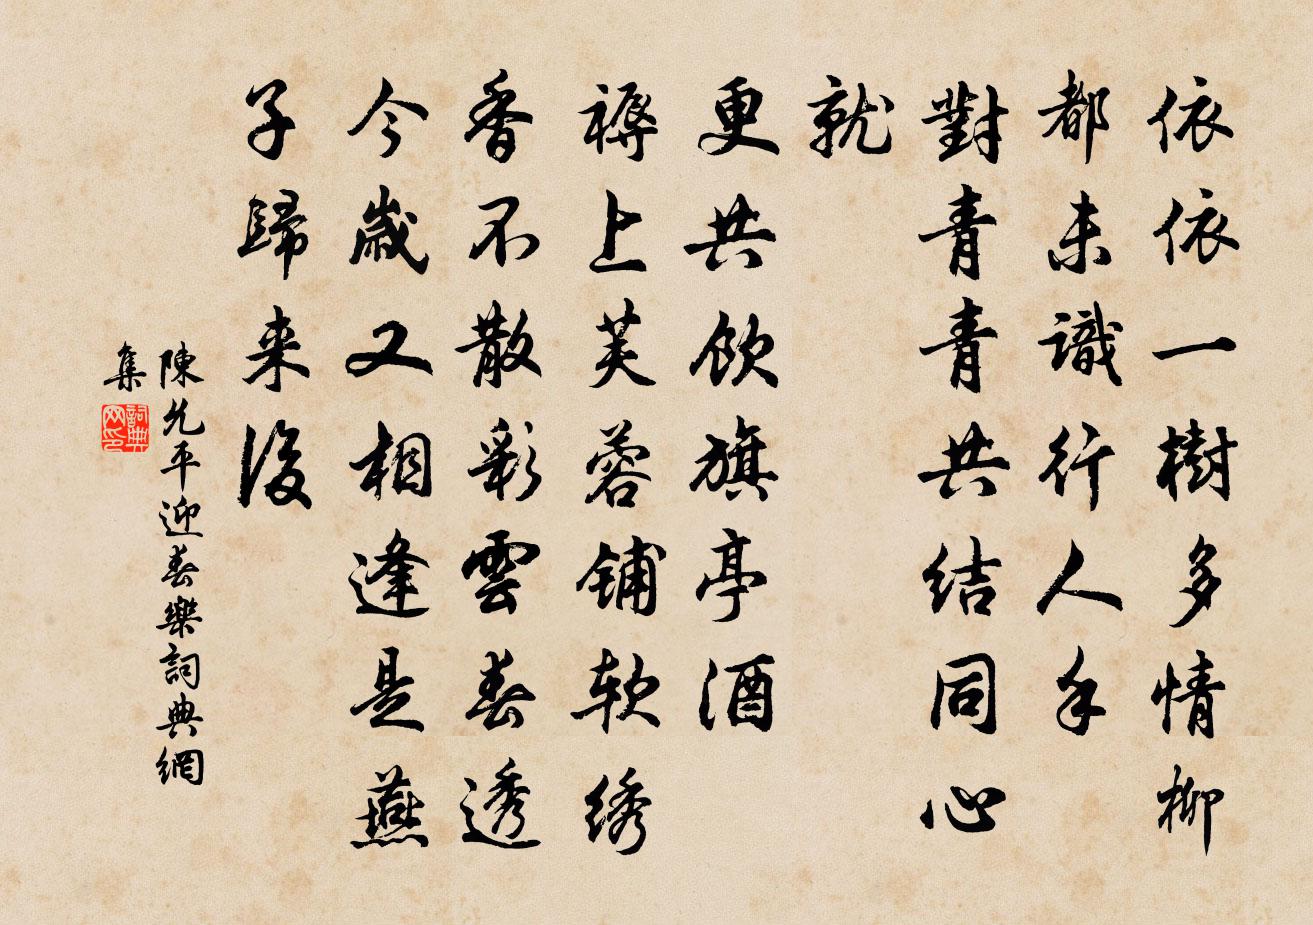 依依一樹多情柳
都未識行人手
對青青共结同心
就
更共飲旗亭酒
褥上芙蓉铺软绣
香不散彩雲春透
今歲又相逢是燕
子歸来後
陳允平迎春樂詞典網
集
詞典
网印